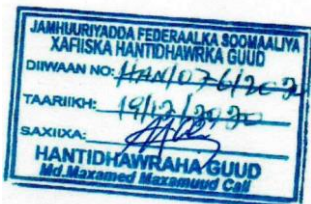 JAMHUURIYADDA FEDERAALKA SOOMAALIYA
XAFIISKA HANTIDHAWRKA GUUD
DIIWAAN NO: HAN/076/2020
TAARIIKH: 19/12/2020
SAXIIXA:
HANTIDHAWRAHA GUUD
Md.Maxamed Maxamuud Cali